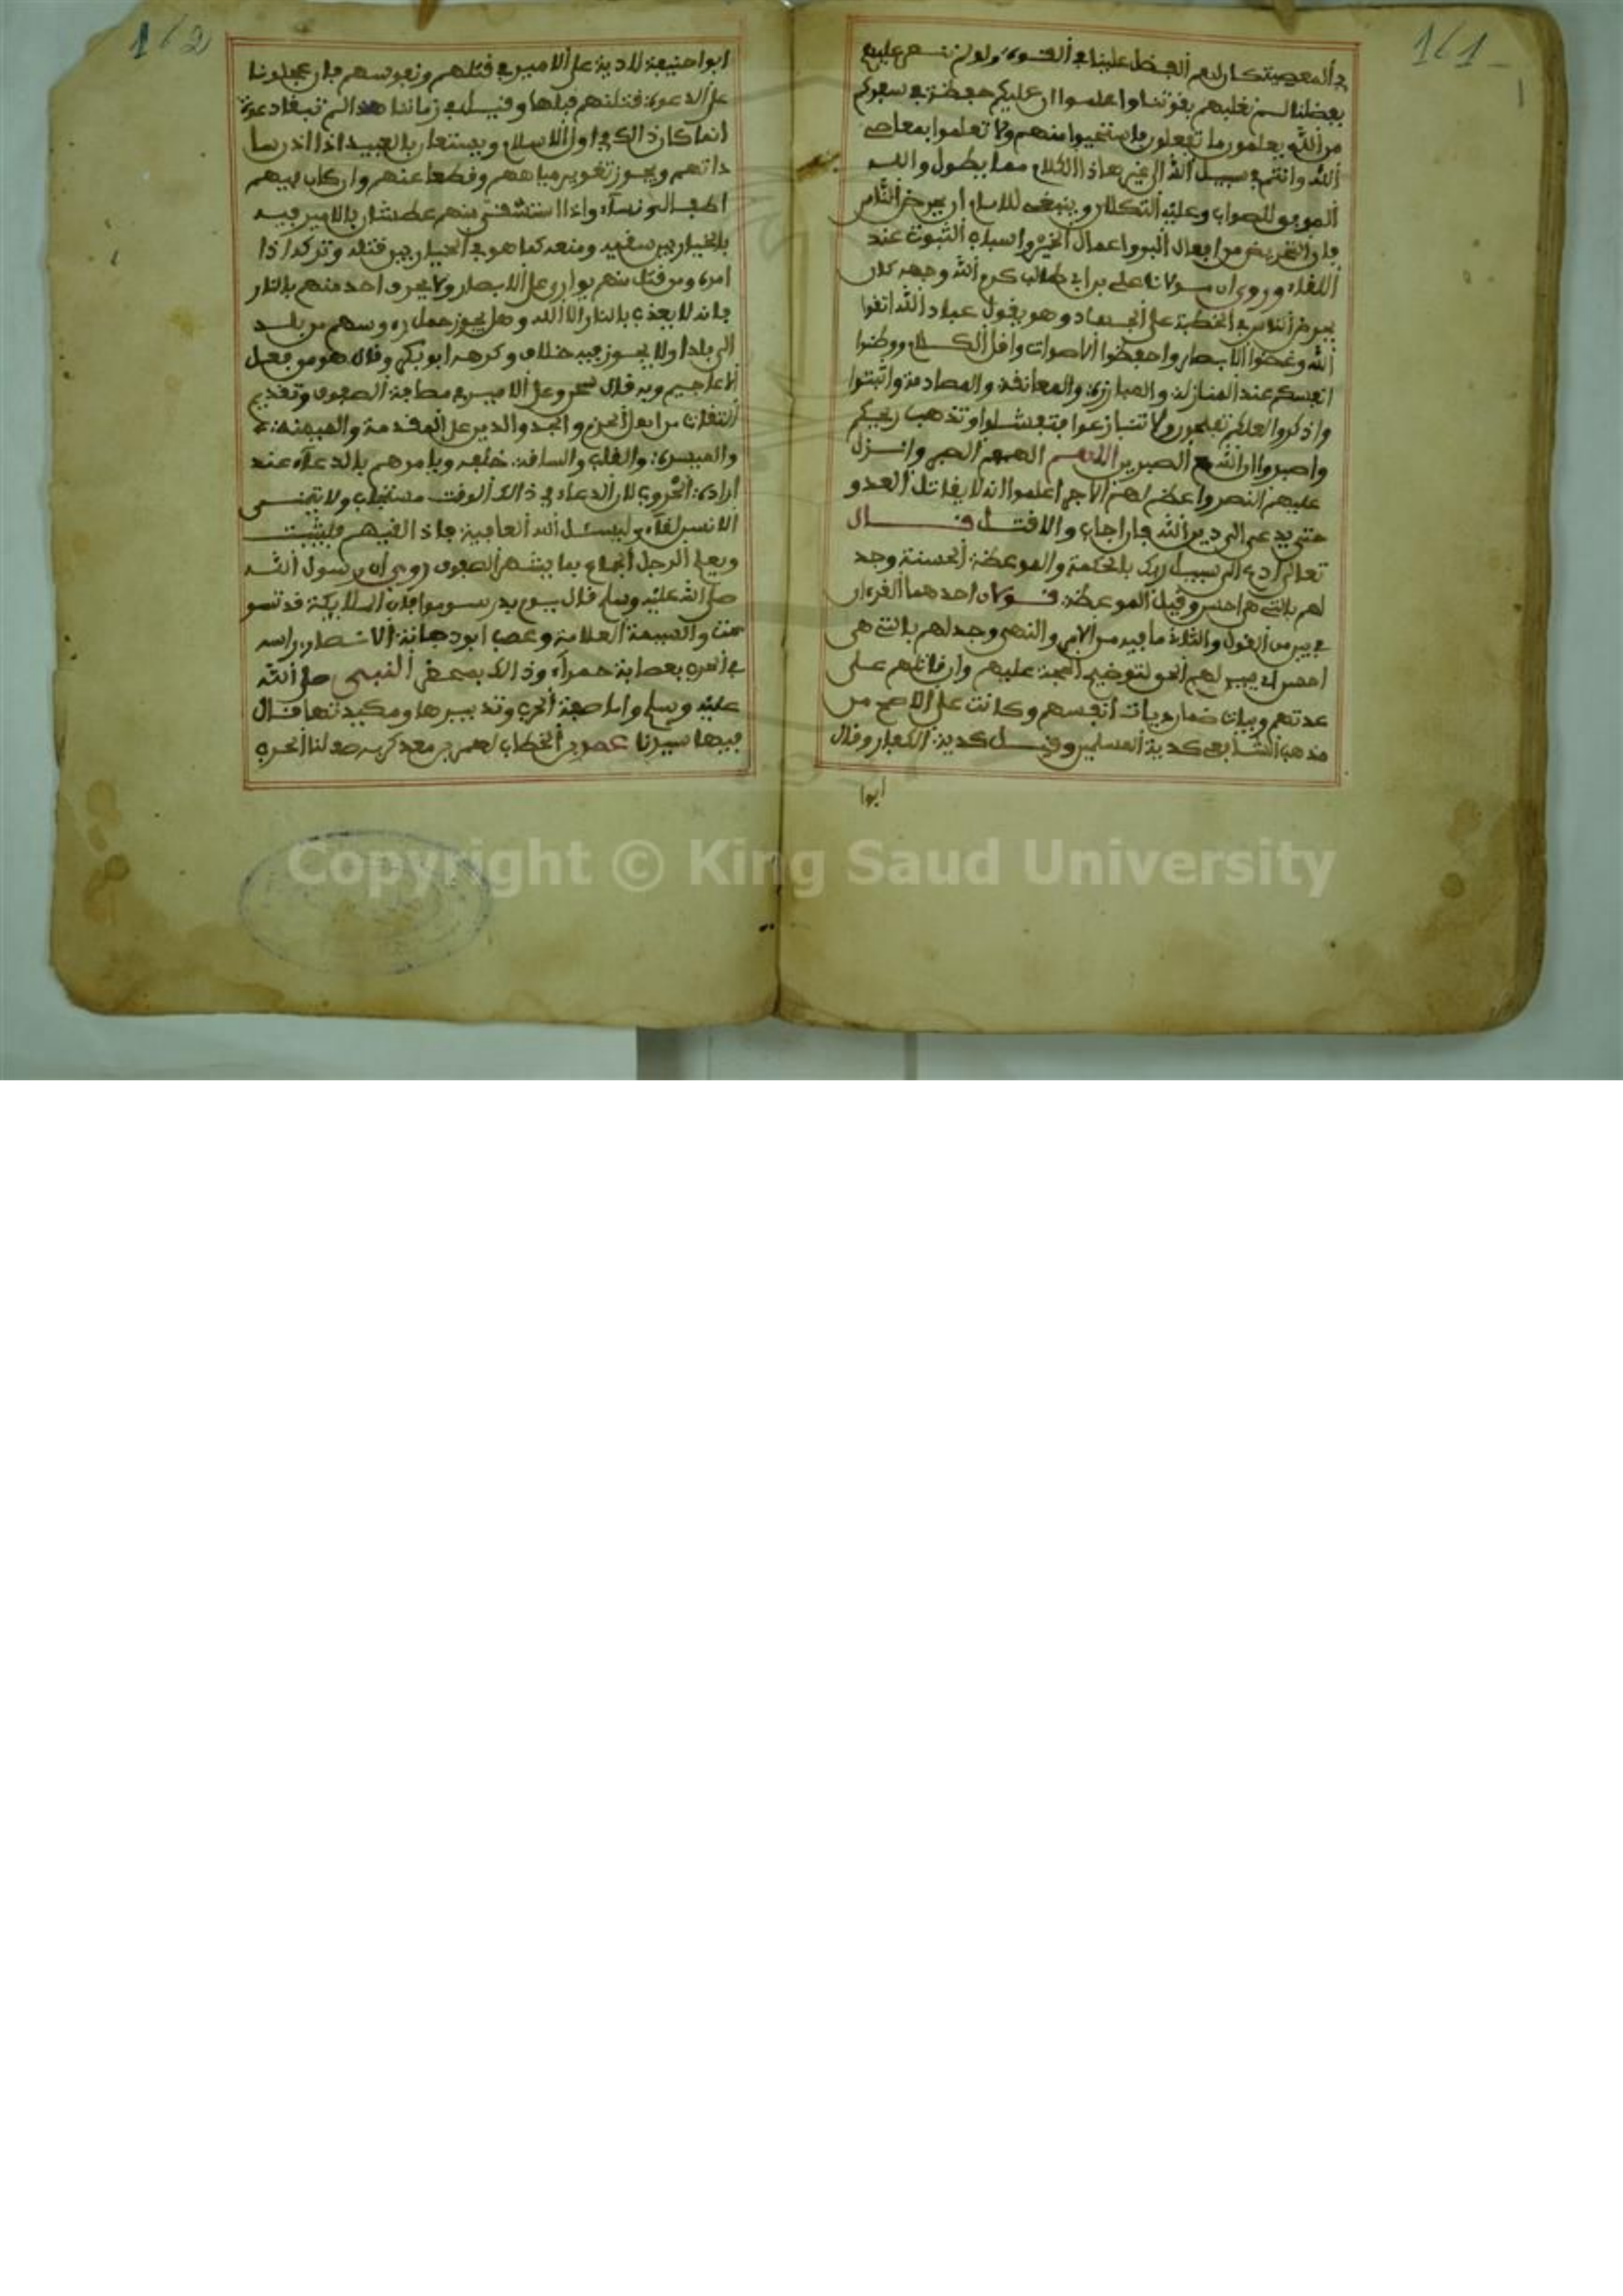 161
في المعصية كان لهم الفضل علينا في القوة ولو لن ننصر عليهم
بفضلنا لم نغلبهم بقوتنا واعلموا ان عليكم حفظة في سفركم
من الله يعلمون ما تفعلون فاستحيوا منهم ولا تعلموا بمعاصي
الله وانتم في سبيل الله الى غير هاذا الكلام مما يطول والله
الموفق للصواب وعليه التكلان وينبغي للامام ان يحرض الناس
فان التحريض من افعال البر واعمال الخير واسباب الثبوت عند
اللقاء وروي ان مولانا علي بن ابي طالب كرم الله وجهه كان
يحرض الناس في الخطبة على الجهاد وهو يقول عباد الله اتقوا
الله وغضوا الابصار واحفظوا الاصوات واقل الكلام ووطنوا
انفسكم عند المنازلة والمبارزة والمعانفة والمصادمة واثبتوا
واذكروا لعلكم تفلحون ولا تنازعوا فتفشلوا وتذهب ريحكم
واصبروا ان الله مع الصبرين اللهم الهمهم الصبر وانزل
عليهم النصر واعظم لهم الاجر اعلموا انه لا يقاتل العدو
حتى يدعى الى دين الله فان اجاب والا قتل قال
تعالى ادع الى سبيل ربك بالحكمة والموعظة الحسنة وجد
لهم بالتي هي احسن وقيل الموعظة قولان احدهما القرءان
في بين من القول والثاني ما فيه من الامر والنهي وجدلهم بالتي هي
احسن اي يبين لهم الحق لتوضيح الحجة عليهم وان قاتلهم على
عدتهم وبيات ضمان ديات انفسهم وكانت على الاصح من
مذهب الشافعي كدية المسلمين وقيل كدية الكفار وقال
ابوا
162
ابوا حنيفة لا دية على الامير في قتلهم ونفوسهم فان عجلونا
على الدعوة قتلنهم قبلها وقيل في زماننا هذا لم تبقا دعوة
انما كان ذالك في اول الاسلام ويستعان بالعبيد اذا اذن سا
داتهم ويجوز تغوير مياههم وقطعا عنهم وان كان فيهم
اطفال ونساء واذا استشقى منهم عطشان فالامير فيه
بالخيار بين سقيه ومنعه كما هو في الخيار بين قتله وتركه اذا
امره ومن قتل منهم يوارى على الابصار ولا يحرق احد منهم بالنار
فانه لا يعذب بالنار الا الله وهل يجوز حمل رءوسهم من بلد
الى بلد او لا يجوز فيه خلاف وكرهه ابو بكر وقال هو من فعل
الاعاجيم وبه قال سحر وعلى الامير في مطاجة الصفوف وتقديم
الثقات من اهل الحزم والجد والدين على المقدمة والميمنة
والميسرة والقلب والساقة خلفه ويامرهم بالدعاء عند
ارادة الحروب لان الدعاء في ذالك الوقت مستجاب ولا يتمنى
الانسن لقاء بل يسئل الله العافية فاذا لقيهم فليثبت
ويعلم الرجل الشجاع بما يشهر الصفوف روي ان رسول الله
صلى الله عليه وسلم قال يوم بدر سوموا فان الملايكة قد تسو
مت والسيمة العلامة وعصب ابو دجانة الانصاري راسه
في الحرب بعصابة حمراء وذالك بمحضر النبي صلى الله
عليه وسلم واما صفة الحرب وتدبيرها ومكيدتها فقال
فيها سيدنا عمر بن الخطاب لعمر بن معد كرب صف لنا الحرب
Copyright © King Saud University